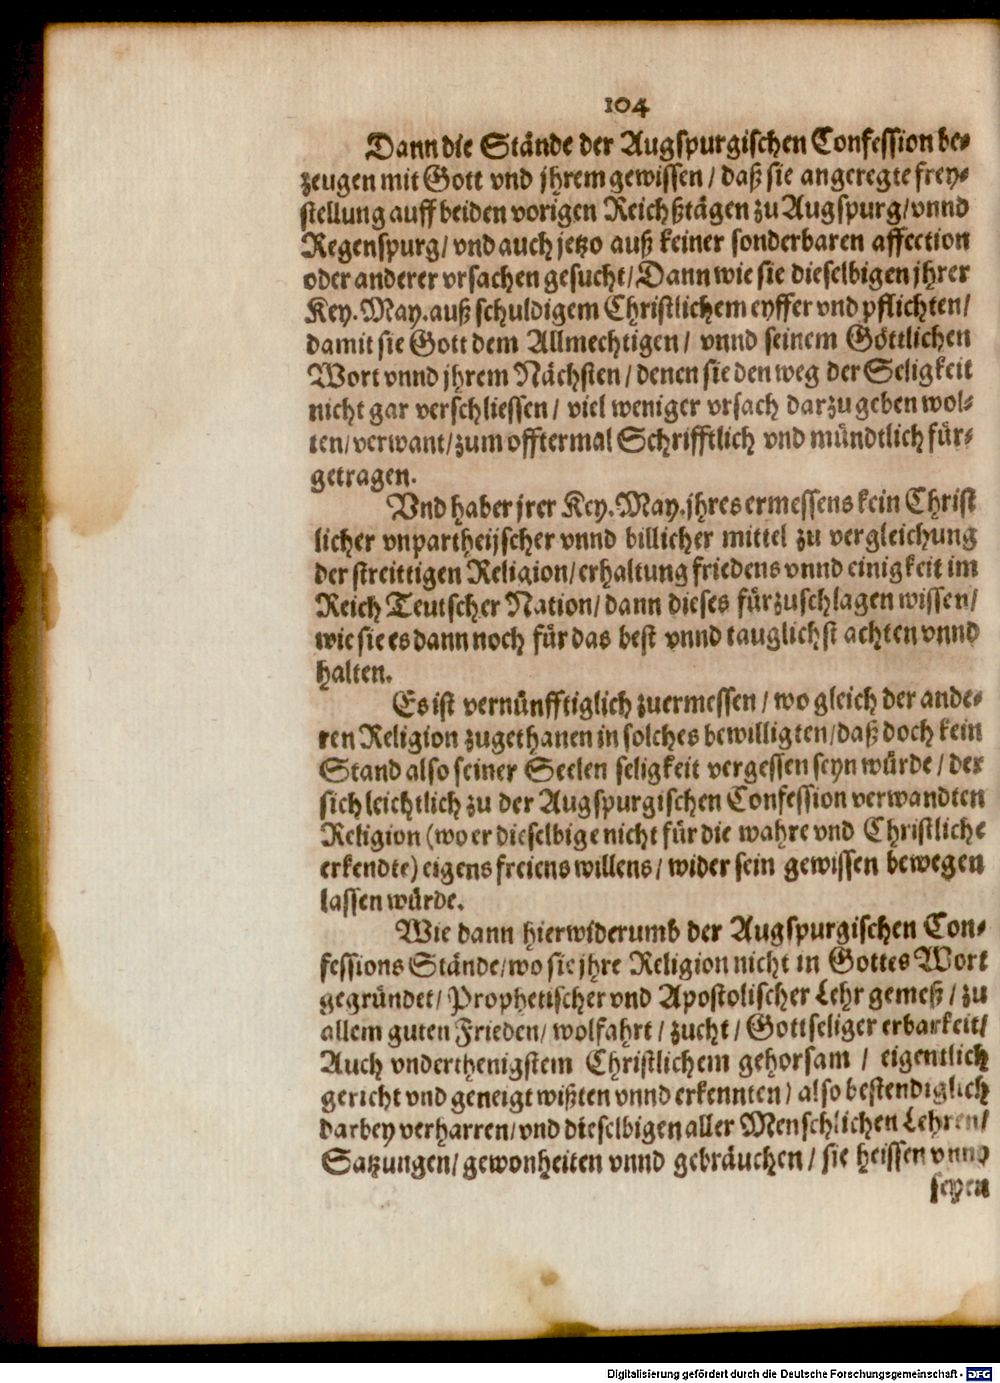 104
Dann die Stände der Augspurgischen Confession be-
zeugen mit Gott vnd jhrem gewissen / daß sie angeregte frey-
stellung auff beiden vorigen Reichßtägen zu Augspurg / vnnd
Regenspurg / vnd auch jetzo auß keiner sonderbaren affection
oder anderer vrsachen gesucht / Dann wie sie dieselbigen jhrer
Key. May. auß schuldigem Christlichem eyffer vnd pflichten /
damit sie Gott dem Allmechtigen / vnnd seinem Göttlichen
Wort vnnd jhrem Nächsten / denen sie den weg der Seligkeit
nicht gar verschliessen / viel weniger vrsach darzu geben wol-
ten / verwant / zum offtermal Schrifftlich vnd mündtlich für-
getragen.
Vnd haber jrer Key. May. jhres ermessens kein Christ
licher vnpartheijscher vnnd billicher mittel zu vergleichung
der streittigen Religion / erhaltung friedens vnnd einigkeit im
Reich Teutscher Nation / dann dieses fürzuschlagen wissen /
wie sie es dann noch für das best vnnd tauglichst achten vnnd
halten.
Es ist vernünfftiglich zuermessen / wo gleich der ande-
ren Religion zugethanen in solches bewilligten / daß doch kein
Stand also seiner Seelen seligkeit vergessen seyn würde / der
sich leichtlich zu der Augspurgischen Confession verwandten
Religion (wo er dieselbige nicht für die wahre vnd Christliche
erkendte) eigens freiens willens / wider sein gewissen bewegen
lassen würde.
Wie dann hierwiderumb der Augspurgischen Con-
fessions Stände / wo sie jhre Religion nicht in Gottes Wort
gegründet / Prophetischer vnd Apostolischer Lehr gemeß / zu
allem guten Frieden / wolfahrt / zucht / Gottseliger erbarkeit /
Auch vnderthenigstem Christlichem gehorsam / eigentlich
gericht vnd geneigt wißten vnnd erkennten / also bestendiglich
darbey verharren / vnd dieselbigen aller Menschlichen Lehren /
Satzungen / gewonheiten vnnd gebräuchen / sie heissen vnnd
seyen
Digitalisierung gefördert durch die Deutsche Forschungsgemeinschaft - DFG